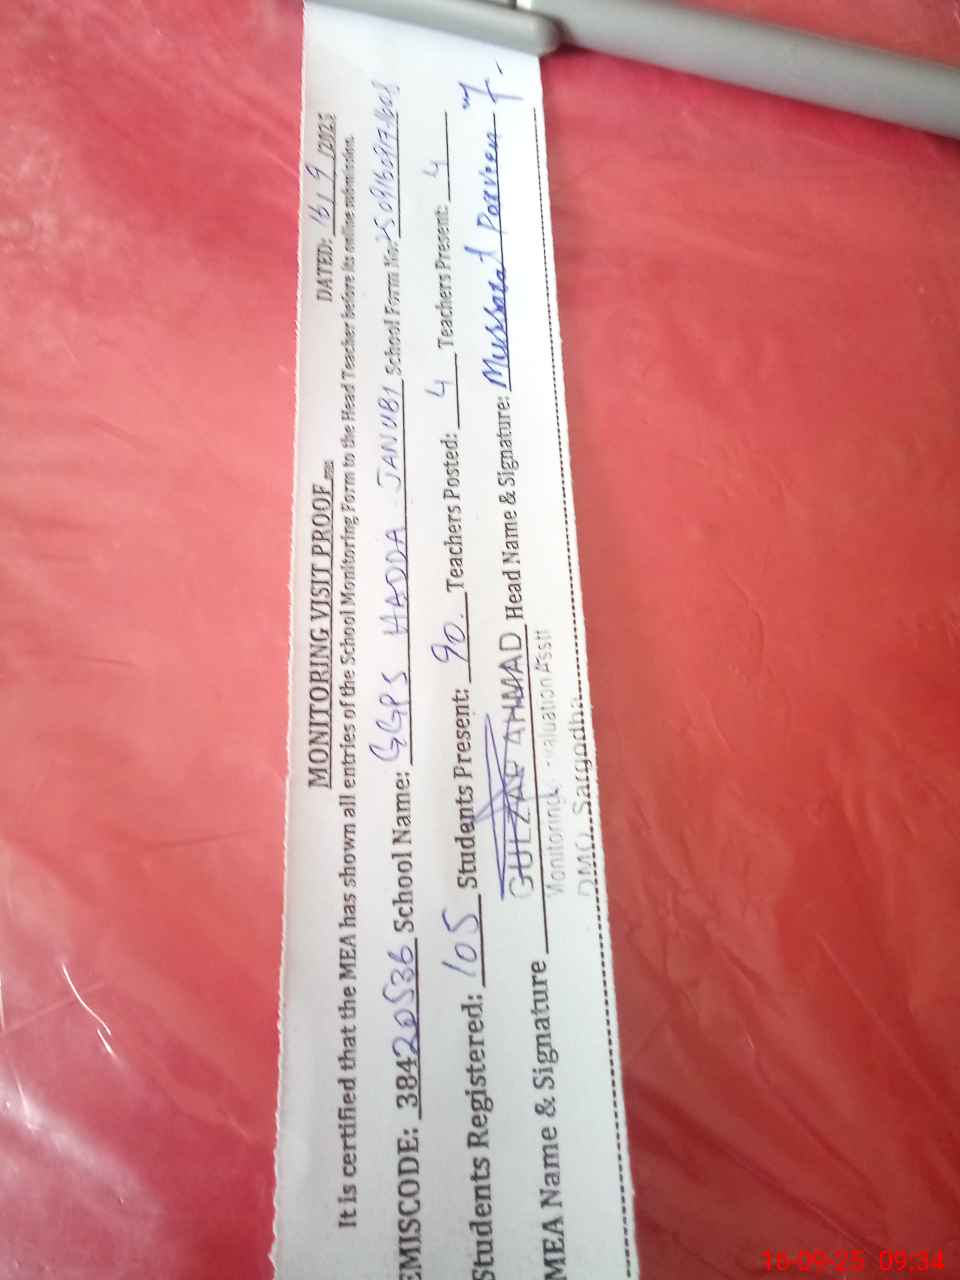 MONITORING VISIT PROOF
DATED: 16/9/2025
It is certified that the MEA has shown all entries of the School Monitoring Form to the Head Teacher before its online submission.
EMISCODE: 38420536 School Name: GGPS HADDA JANUBI School Form No:
Students Registered: 105 Students Present: 90. Teachers Posted: 4 Teachers Present: 4
MEA Name & Signature GULZAR AHMAD Head Name & Signature: Mussarat Parveen
Monitoring Evaluation Asstt
DMO, Sargodha
16-09-25 09:34